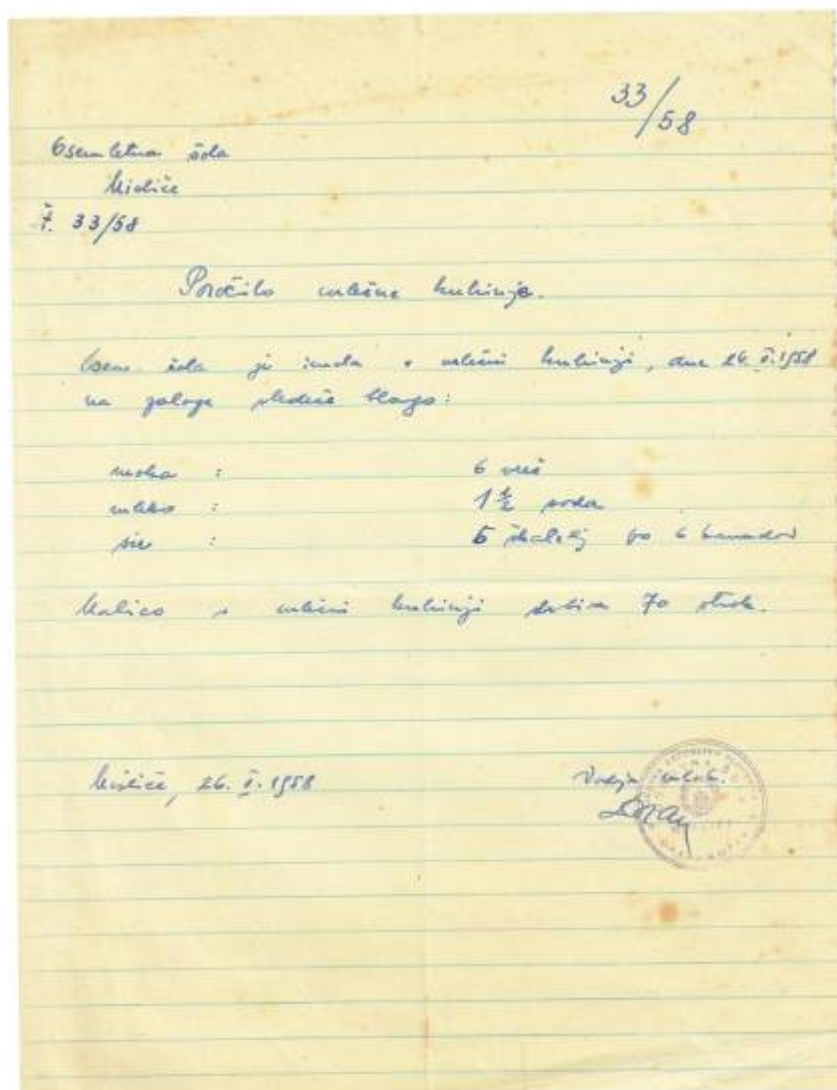 33/58
Osemletna šola
Misliče
Št. 33/58
Poročilo mlečne kuhinje.
Osem. šola je imela v mlečni kuhinji, dne 26. V. 1958
na zalogi sledeče blago:
moka : 6 vreč
mleko : 1 1/2 soda
sir : 5 škatelj po 6 komadov
Malico v mlečni kuhinji dobiva 70 otrok.
Misliče, 26. V. 1958
Vodja mleč. kuh.